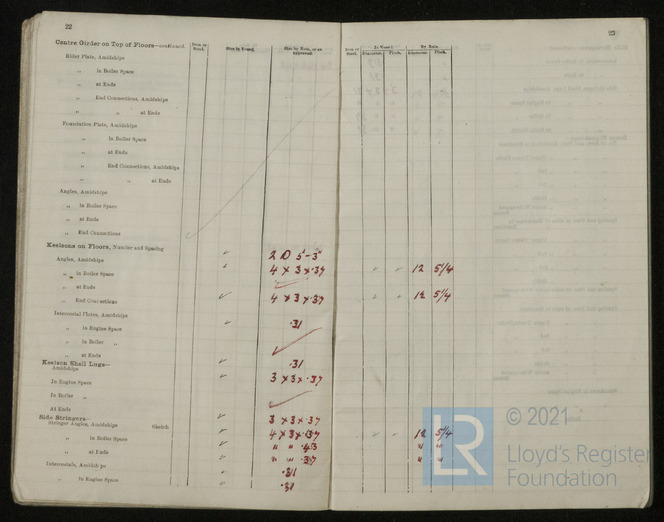 22
Centre Girder on Top of Floors—continued.
Iron or Steel.
Size in Vessel.
Size by Rule, or as approved.
Rider Plate, Amidships
„ in Boiler Space
„ at Ends
„ End Connections, Amidships
„ „ at Ends
Foundation Plate, Amidships
„ in Boiler Space
„ at Ends
„ End Connections, Amidships
„ „ at Ends
Angles, Amidships
„ in Boiler Space
„ at Ends
„ End Connections
Keelsons on Floors, Number and Spacing ✓ 2 @ 5'-3"
Angles, Amidships ✓ 4 × 3 × .37
„ in Boiler Space
„ at Ends
„ End Connections ✓ 4 × 3 × .37
Intercostal Plates, Amidships
„ in Engine Space ✓ .31
„ in Boiler „
„ at Ends
Keelson Shell Lugs— .31
Amidships ✓ 3 × 3 × .37
In Engine Space
In Boiler „
At Ends
Side Stringers— ✓ 3 × 3 × .37
Stringer Angles, Amidships Sketch ✓ 4 × 3 × .37
„ in Boiler Space ✓ " " .43
„ at Ends ✓ " " .37
Intercostals, Amidships ✓ .31
„ in Engine Space ✓ .31
23
Iron or Steel.
In Vessel.
By Rule.
Diameter. Pitch. Diameter. Pitch.
✓ ✓ 12 5/4
✓ ✓ 12 5/4
✓ ✓ 12 5/4
" "
" "
LR
© 2021
Lloyd's Register
Foundation